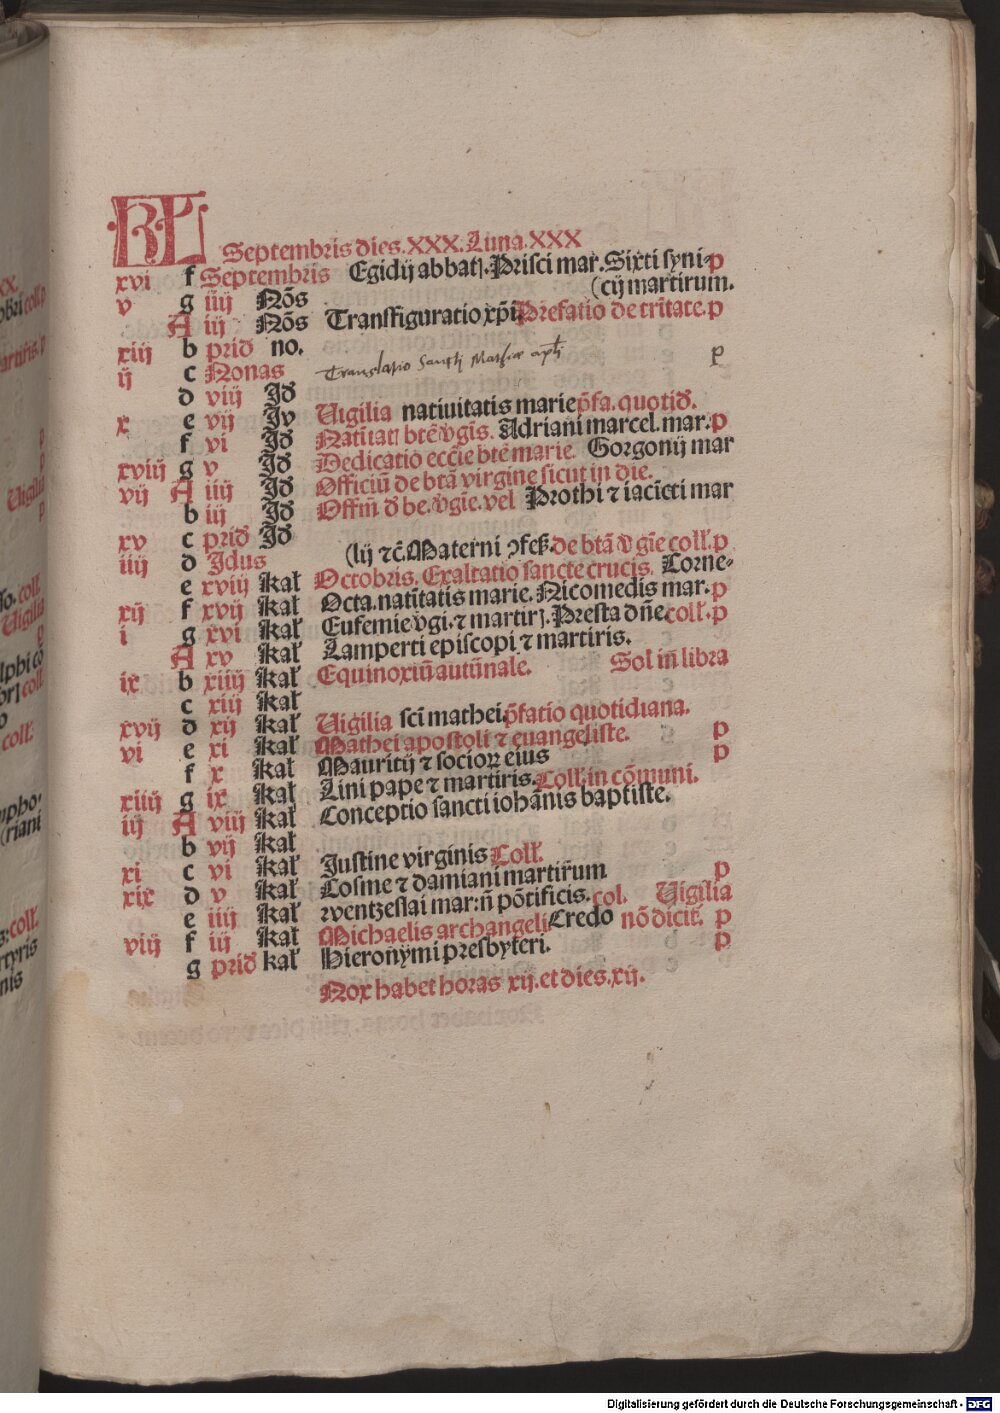 KL Septembris dies.XXX.Luna.XXX
xvi f Septembris Egidij abbatꝭ.Prisci mar.Sixti syni⸗p
v g iiij Nōs (cij martirum.
A iij Nōs Transfiguratio xp̄i.Prefatio de tritate.p
xiij b prid no.
ij c Nonas Translatio Sancti Mathiae apli p
d viij Id
x e vij Id Uigilia natiuitatis marie p̄fa.quotid.
f vi Id Natiuitatꝭ btē v̄gīs. Adriani marcel.mar.p
xviij g v Id Dedicatio eccīe btē marie. Gorgonij mar
vij A iiij Id Officiū de btā virgine sicut in die.
b iij Id Offm̄ d be.v̄gīe.vel Prothi ⁊ iacīcti mar
xv c prid Id
iiij d Idus (lij ⁊c̄.Materni ꝯfeß.de btā v̄gīe coll.p
e xviij kal Octobris. Exaltatio sancte crucis. Corne⸗
xij f xvij kal Octa.natītatis marie.Nicomedis mar.p
i g xvi kal Eufemie v̄gi.⁊ martirꝭ.Presta dn̄e.coll.p
A xv kal Lamperti episcopi ⁊ martiris.
ix b xiiij kal Equinoxiū autūnale. Sol in libra
c xiij kal
xvij d xij kal Uigilia scī mathei.p̄fatio quotidiana.
vi e xi kal Mathei apostoli ⁊ euangeliste. p
f x kal Mauritij ⁊ socioꝝ eius p
xiiij g ix kal Lini pape ⁊ martiris.Coll.in cōmuni.
iij A viij kal Conceptio sancti iohānis baptiste.
b vij kal
xi c vi kal Justine virginis Coll.
xix d v kal Cosme ⁊ damiani martirum p
e iiij kal wentzeslai mar:n̄ pōtificis.col. Uigilia
viij f iij kal Michaelis archangeli Credo nō dicit. p
g prid kal Hieronymi presbyteri. p
Nox habet horas xij.et dies.xij.
Digitalisierung gefördert durch die Deutsche Forschungsgemeinschaft - DFG